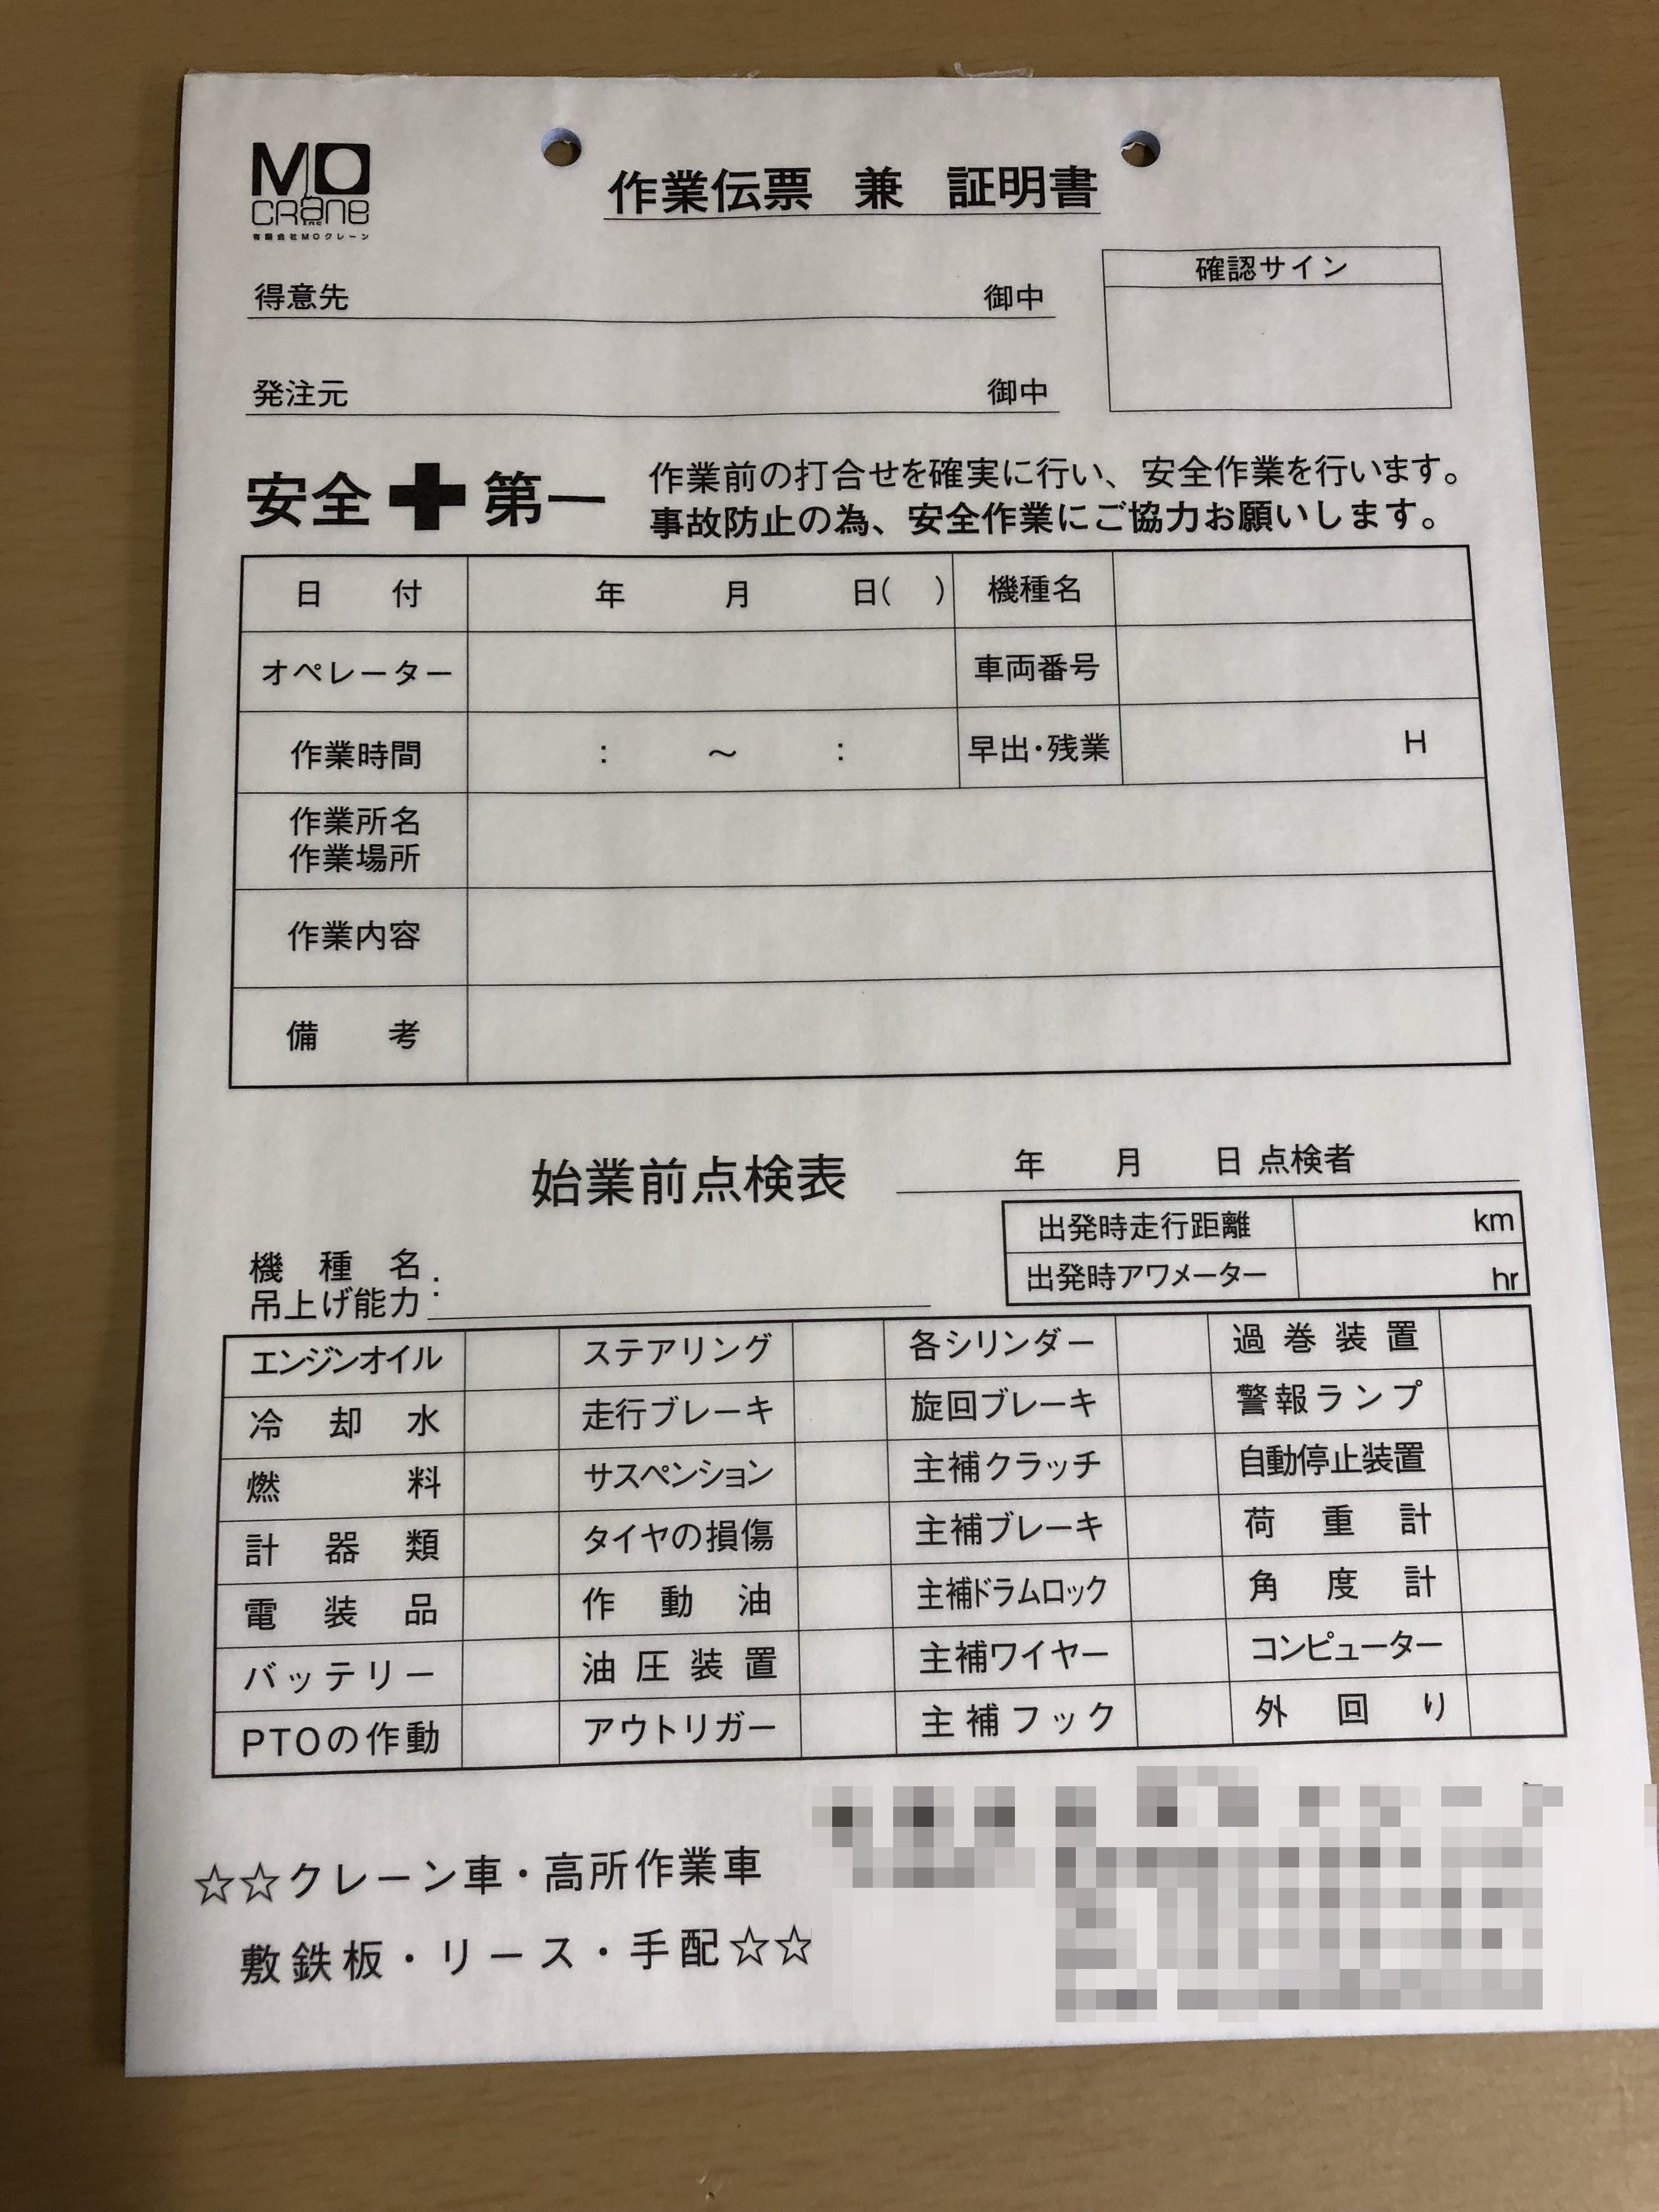 MO
CRANE
INC
有限会社MOクレーン
作業伝票 兼 証明書
確認サイン
得意先 御中
発注元 御中
安全 第一
作業前の打合せを確実に行い、安全作業を行います。
事故防止の為、安全作業にご協力お願いします。
日付 年 月 日( ) 機種名
オペレーター 車両番号
作業時間 : ～ : 早出・残業 H
作業所名
作業場所
作業内容
備考
始業前点検表 年 月 日 点検者
出発時走行距離 km
出発時アワメーター hr
機種名:
吊上げ能力:
エンジンオイル ステアリング 各シリンダー 過巻装置
冷却水 走行ブレーキ 旋回ブレーキ 警報ランプ
燃料 サスペンション 主補クラッチ 自動停止装置
計器類 タイヤの損傷 主補ブレーキ 荷重計
電装品 作動油 主補ドラムロック 角度計
バッテリー 油圧装置 主補ワイヤー コンピューター
PTOの作動 アウトリガー 主補フック 外回り
☆☆クレーン車・高所作業車
敷鉄板・リース・手配☆☆